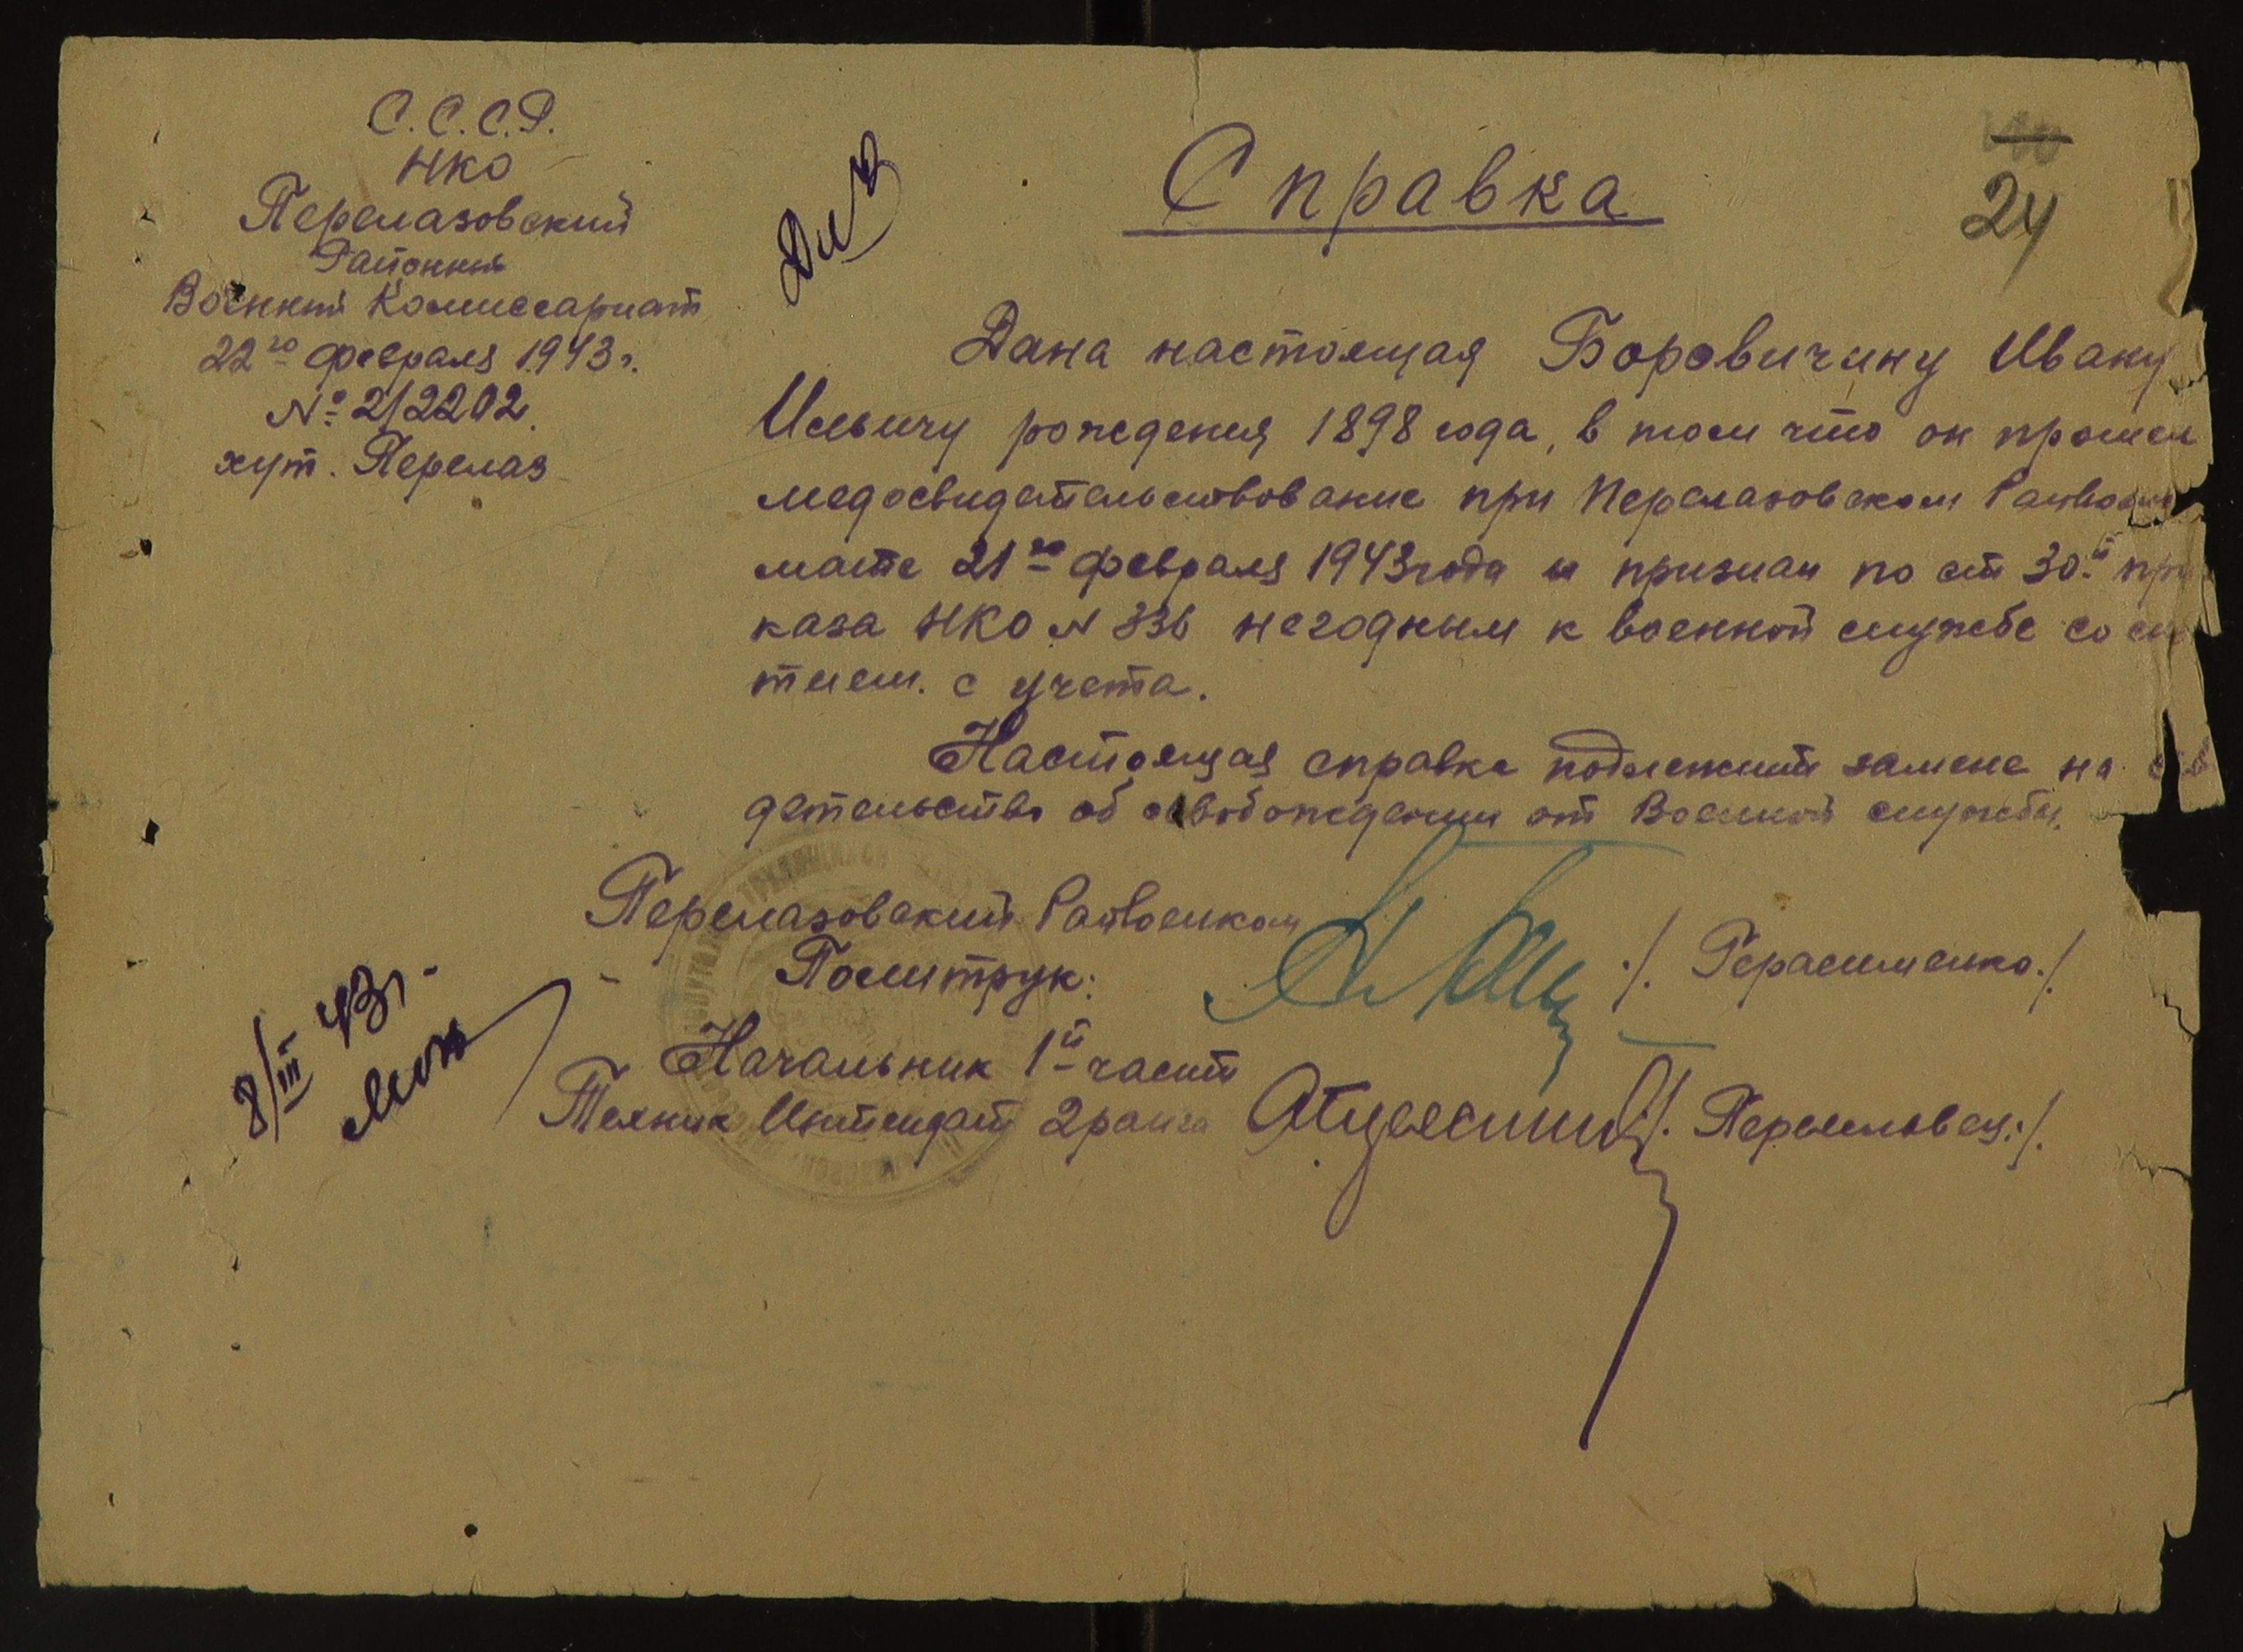 С.С.С.Р.
НКО
Перелазовский
Районный
Военный Комиссариат
22го февраля 1943 г.
№ 2/2202.
хут. Перелаз
24
Справка
Дана настоящая Боровичину Ивану
Ильичу рождения 1898 года, в том что он прошел
медосвидетельствование при Перелазовском Райвоенко
мате 21го февраля 1943 года и признан по ст 30й при
каза НКО N 336 негодным к военной службе со сня
тием. с учета.
Настоящая справка подлежит замене на сви
детельство об освобождении от Военной службы.
Перелазовский Райвоенком
Политрук: /. Герасименко./.
Начальник 1й части
Техник Интендант 2 ранга /. Пермиловец./.
8/III 43 г.